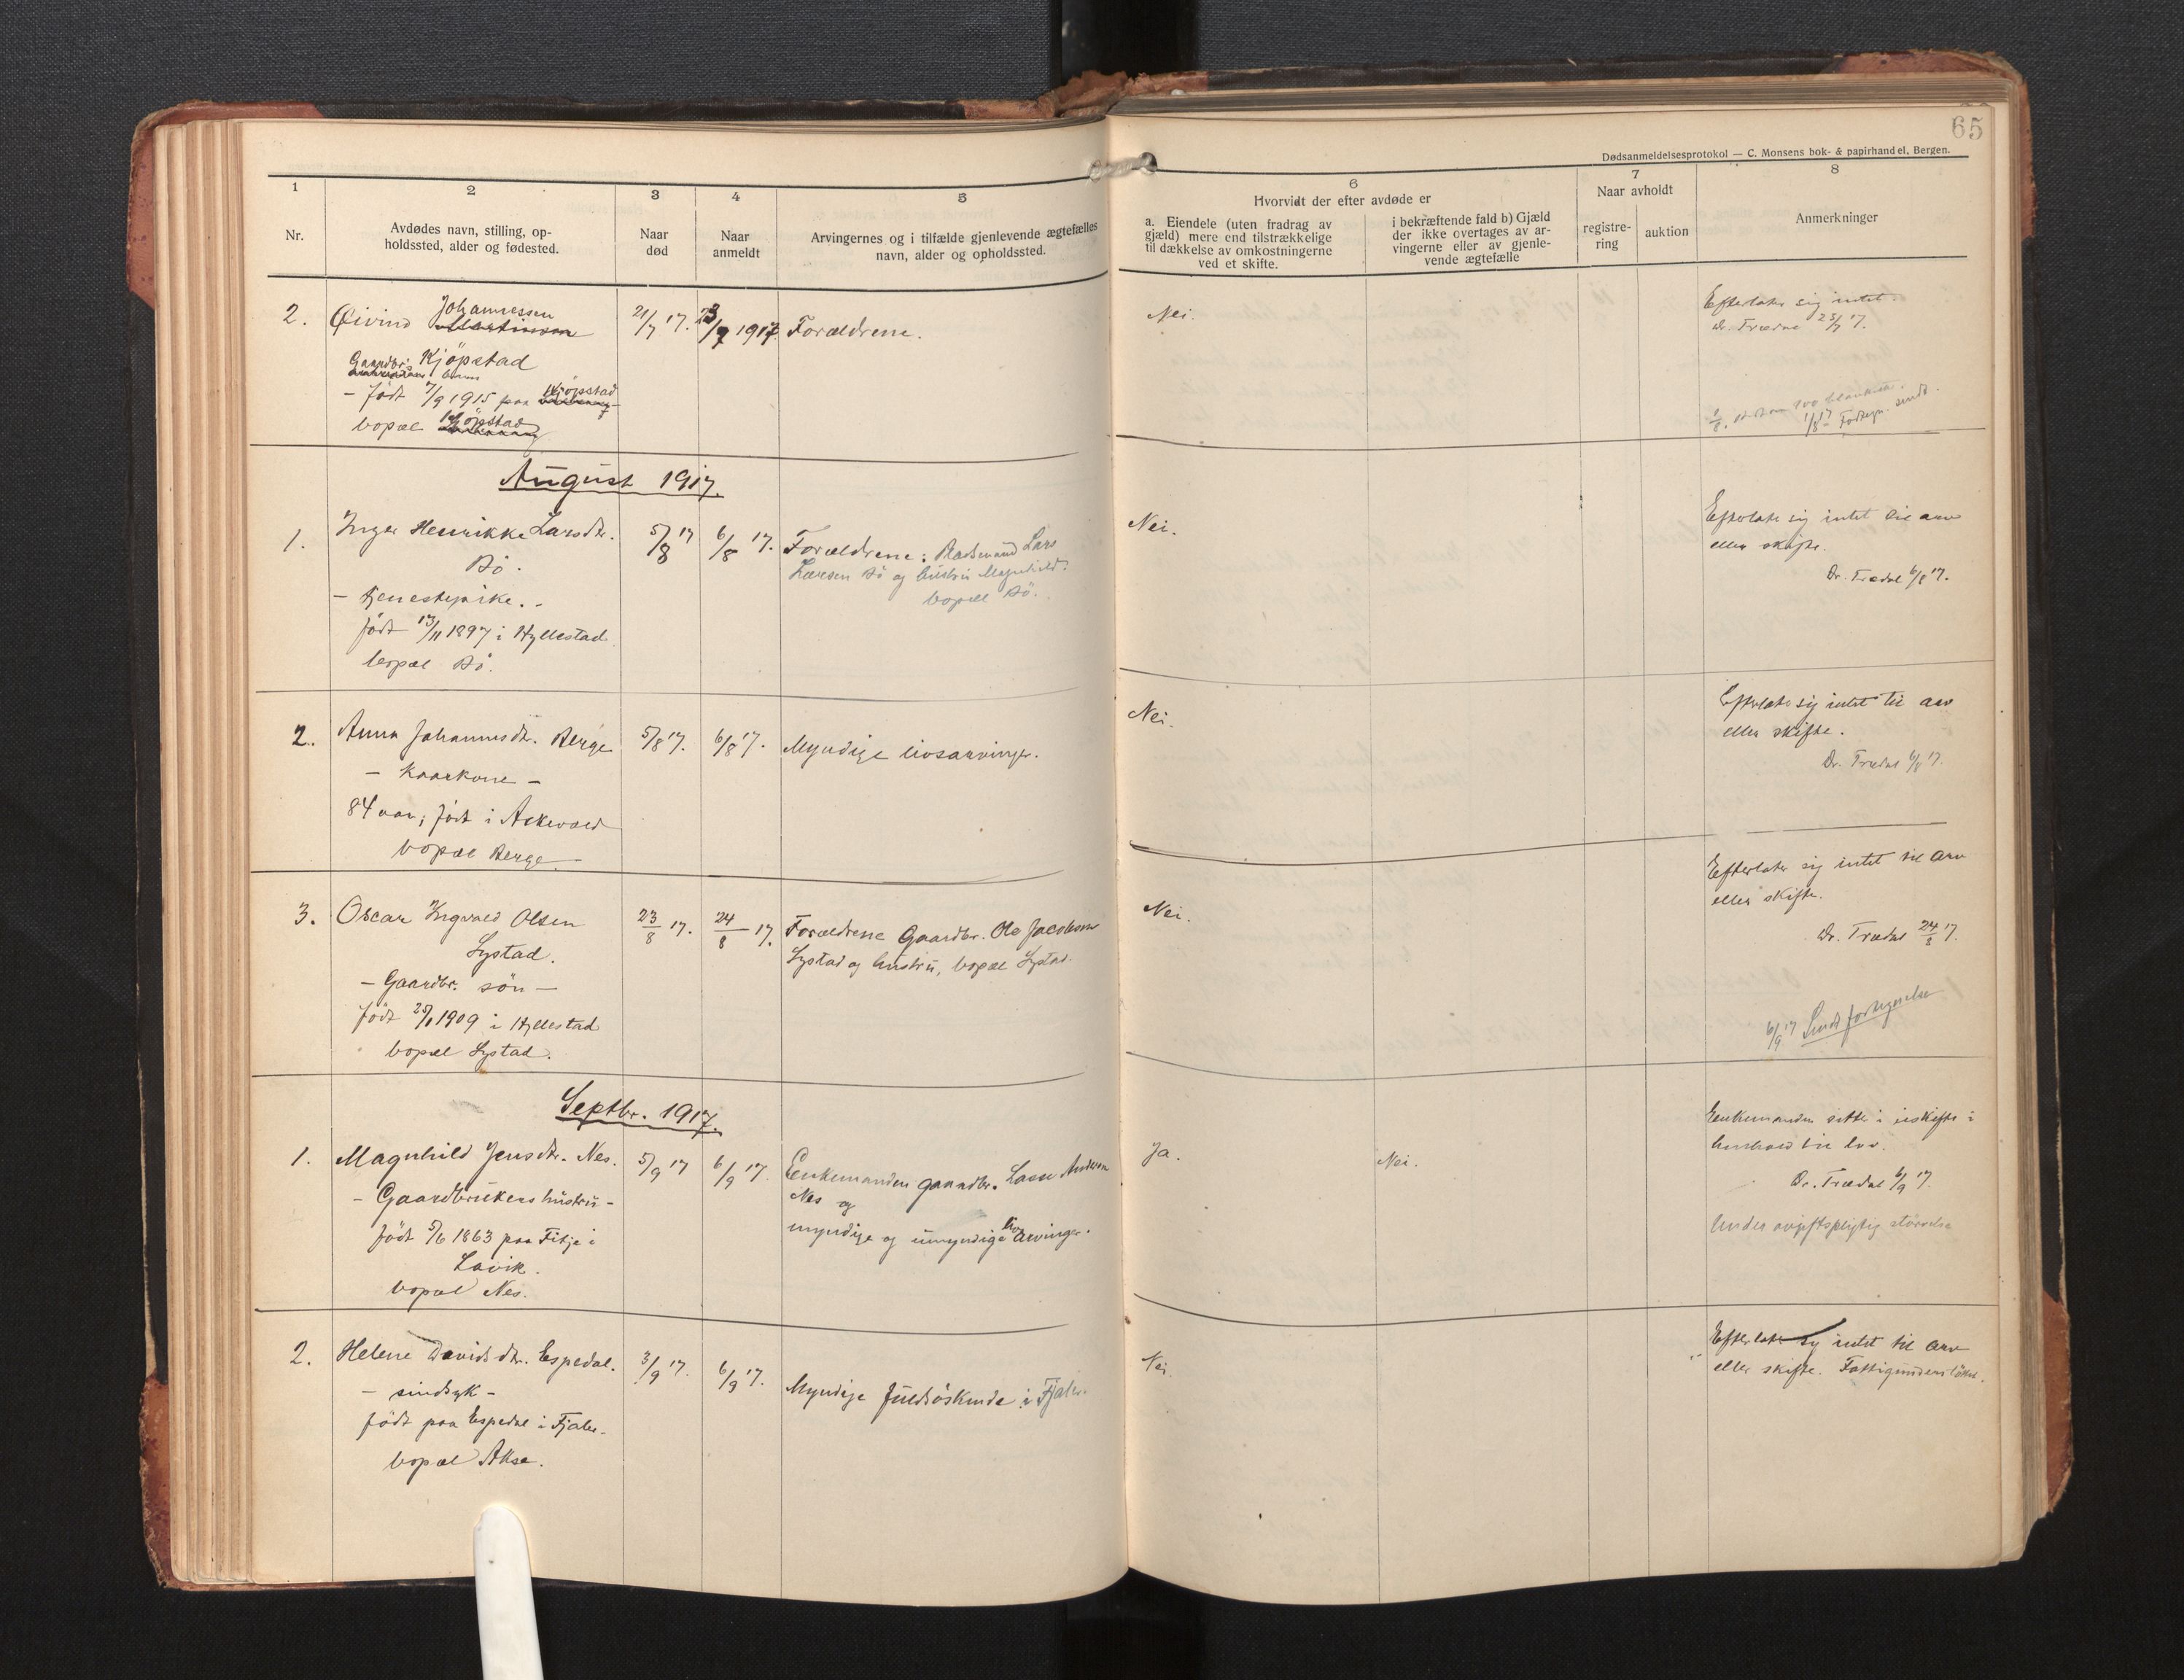 65
Dødsanmeldelsesprotokol — C. Monsens bok- & papirhandel, Bergen.
1
2
3
4
5
6
7
8
Nr.
Avdødes navn, stilling, op-
holdssted, alder og fødested.
Naar
død
Naar
anmeldt
Arvingernes og i tilfælde gjenlevende ægtefælles
navn, alder og opholdssted.
Hvorvidt der efter avdøde er
a. Eiendele (uten fradrag av
gjæld) mere end tilstrækkelige
til dækkelse av omkostningerne
ved et skifte.
i bekræftende fald b) Gjæld
der ikke overtages av ar-
vingerne eller av gjenle-
vende ægtefælle
Naar avholdt
registre-
ring
auktion
Anmerkninger
2.
Øivind Johannessen
Kjöpstad
Gaardbr.
- født 7/9 1915 paa Kjöpstad
bopæl Kjöpstad
21/7 17.
23/7 1917
Forældrene.
Nei.
Efterlater sig intet.
Dr. Trædal 23/7 17.
1/8 17 Forlegn. sendt.
August 1917.
1.
Inger Henrikke Larsdtr.
Bö.
- tjenestepike. -
født 17/11 1897 i Hyllestad
bopæl Bö.
5/8 17
6/8 17.
Forældrene: Pladsmand Lars
Larsen Bö og hustru Magnhild.
bopæl Bö.
Nei.
Efterlater sig intet til arv
eller skifte.
Dr. Trædal 6/8 17.
2.
Anna Johannesdtr. Berge
- Kaarkone -
84 aar, født i Askvold
bopæl Berge
5/8 17.
6/8 17.
Myndige livsarvinger.
Nei.
Efterlater sig intet til arv
eller skifte.
Dr. Trædal 6/8 17.
3.
Oscar Ingvald Olsen
Systad.
- Gaardbr. sön -
født 1909 i Hyllestad
bopæl Systad.
23/8 17.
24/8 17.
Forældrene Gaardbr. Ole Jacobsen
Systad og hustru, bopæl Systad.
Nei.
Efterlater sig intet til arv
eller skifte.
Dr. Trædal 24/8 17.
6/9 17 Sendt forlegnelse
Septbr. 1917.
1.
Magnhild Jensdtr. Nes.
- Gaardbrukers hustru -
født 5/6 1863 paa Fitje i
Lavik.
bopæl Nes.
5/9 17
6/9 17.
Enkemanden gaardbr. Lasse Andersen
Nes og
myndige og umyndige livsarvinger.
Ja.
Nei.
Enkemanden sitter i uskifte i
henhold til lov.
Dr. Trædal 6/9 17.
Under avgiftspligtig størrelse
2.
Helene Davidsdtr. Espedal.
- sindsyk -
født paa Espedal i Fjaler.
bopæl Akse.
3/9 17.
6/9 17.
Myndige fuldsöskende i Fjaler.
Nei.
Efterlater sig intet til arv
eller skifte. Fattigunderstöttet.